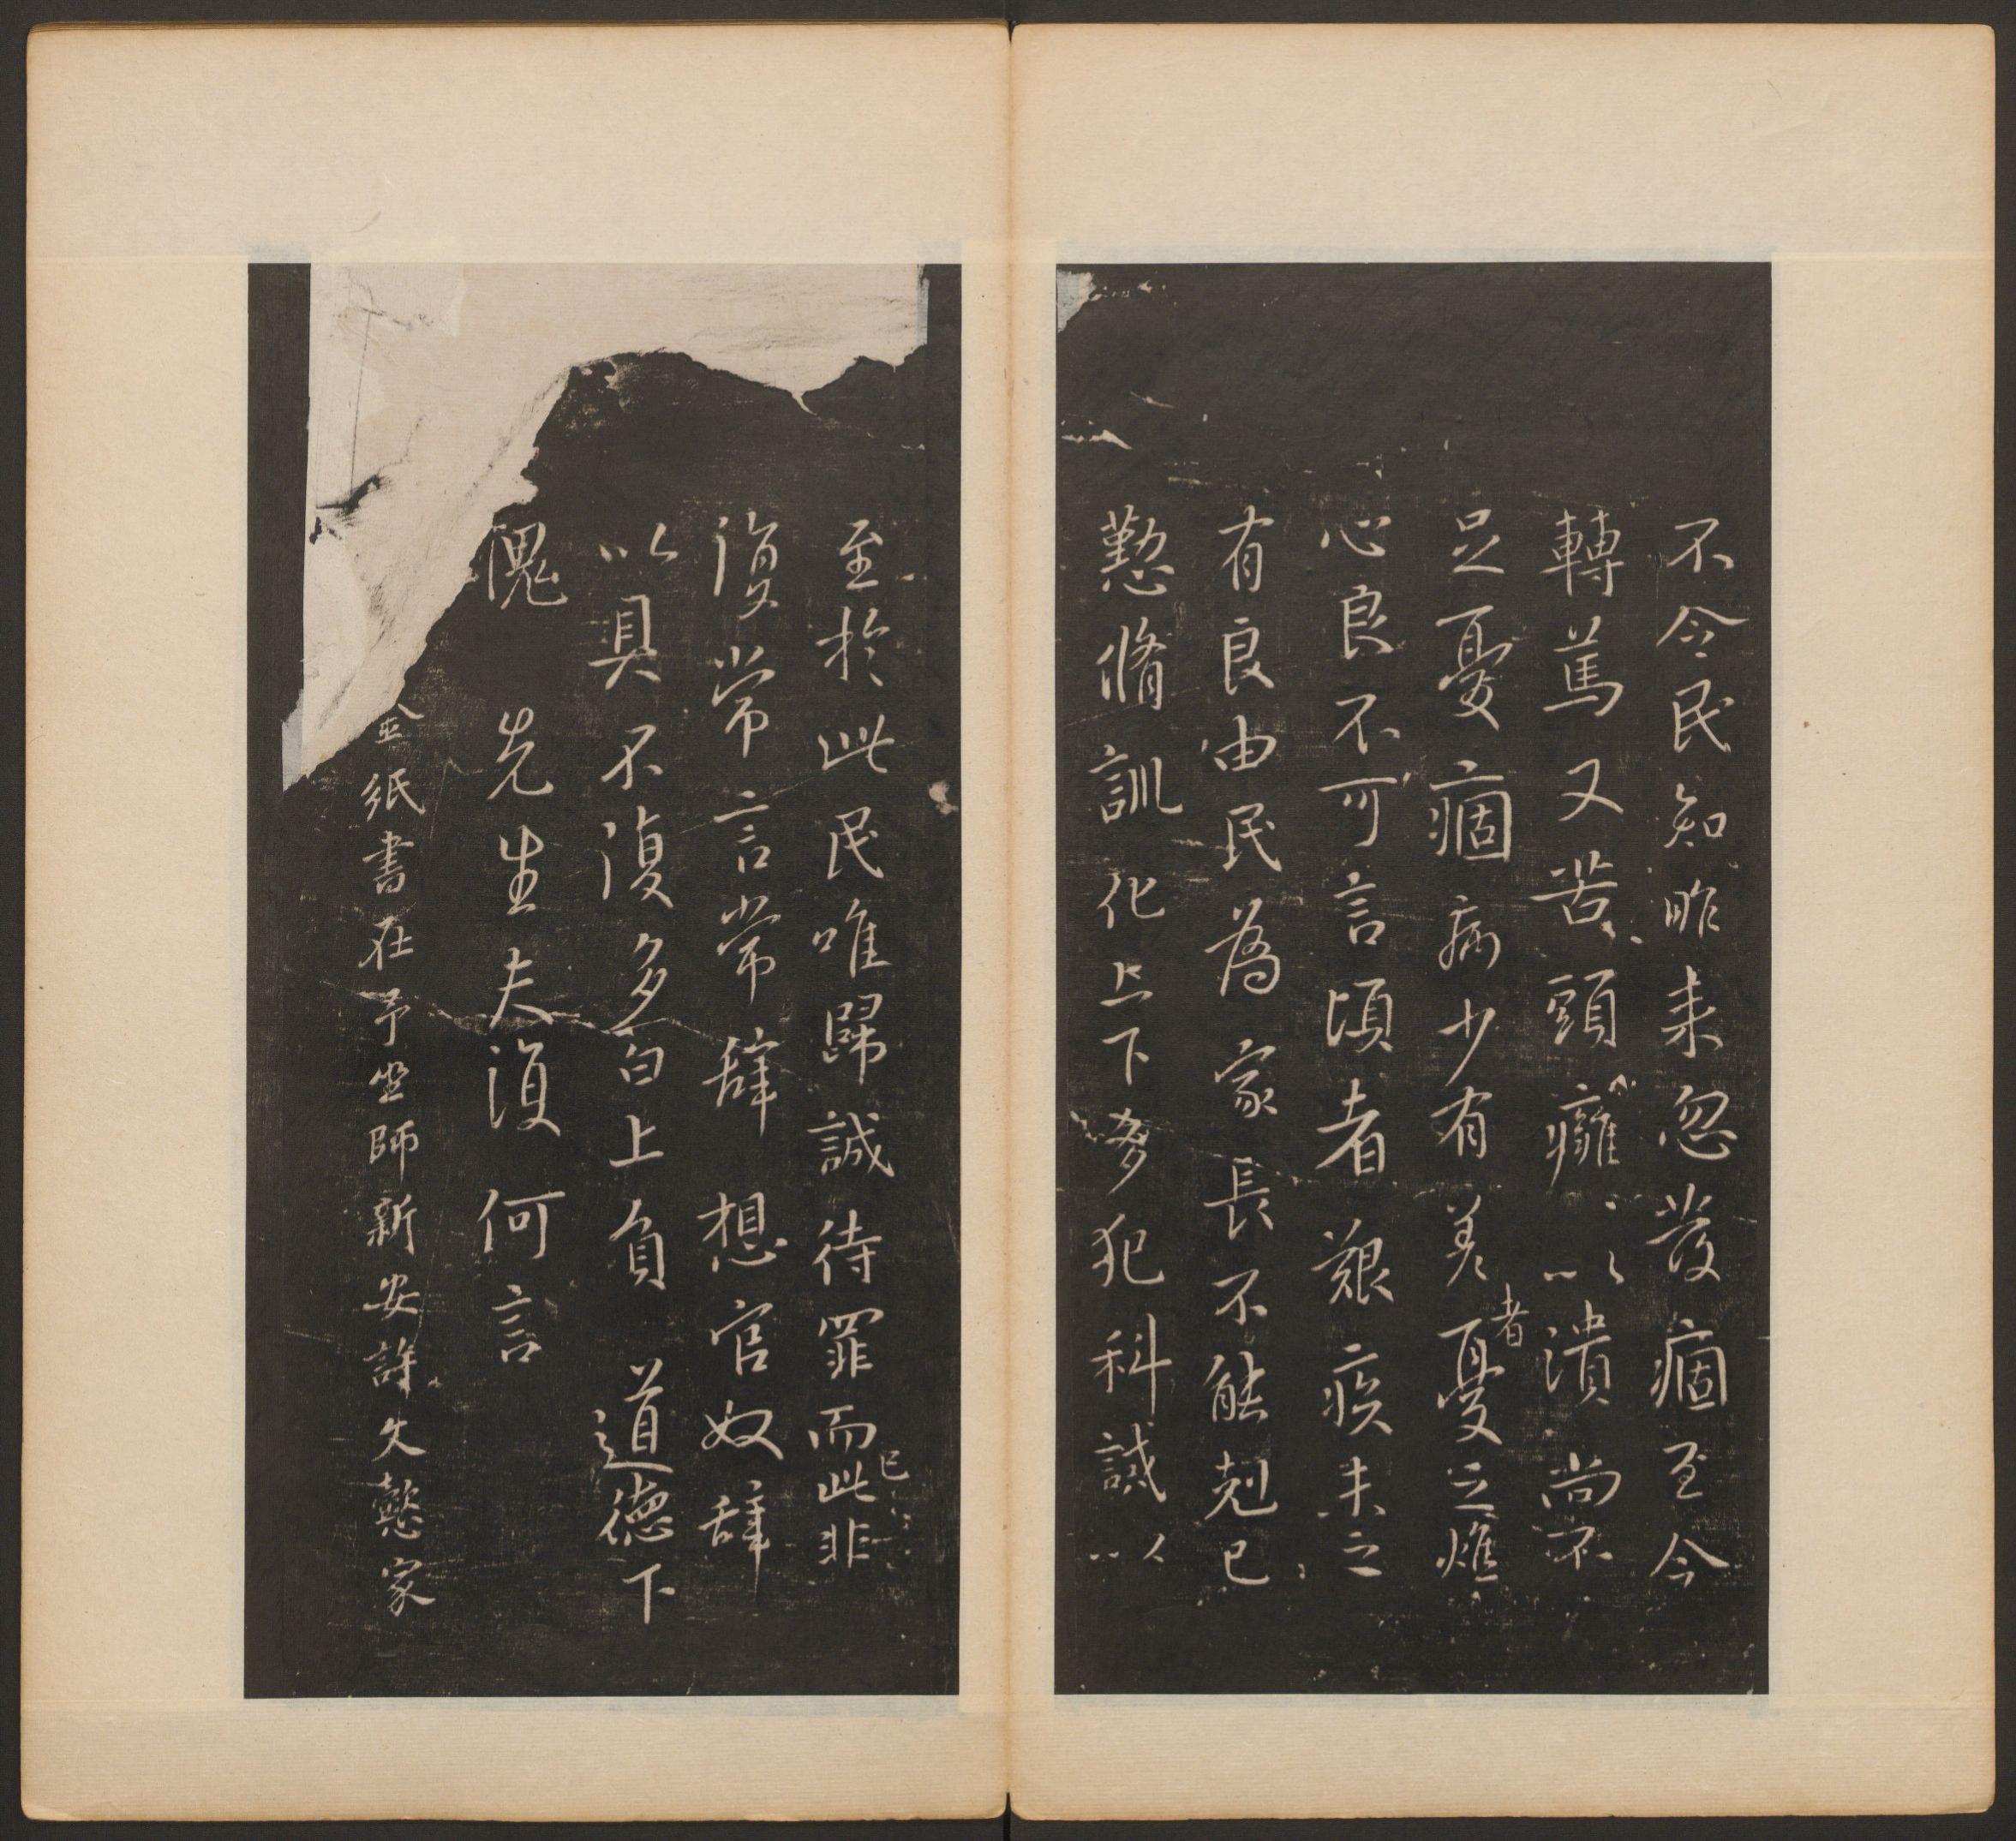 不令民知昨来忽發痼至今
轉篤又苦頭癰、以潰尚不
足憂痼病少有差者憂之燋
心良不可言頃者艱疾未之
有良由民為家長不能剋己
懃脩訓化上下多犯科誡以
至於此民唯歸誠待罪而此非
復常言常辭想官奴辭
以具不復多白上負道德下
愧先生夫復何言
金紙書在予坐師新安許文懿家